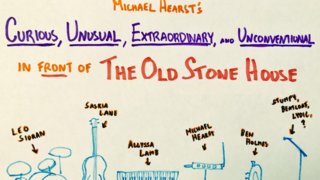 MICHAEL HEARST'S
CURIOUS, UNUSUAL, EXTRAORDINARY, AND UNCONVENTIONAL
IN FRONT OF THE OLD STONE HOUSE
STUMPY,
BENTLONE,
LYDIE,
?
SASKIA
LANE
LEO
SIGRAN
ALLYSSA
LAMB
MICHAEL
HEARST
BEN
HOLMES